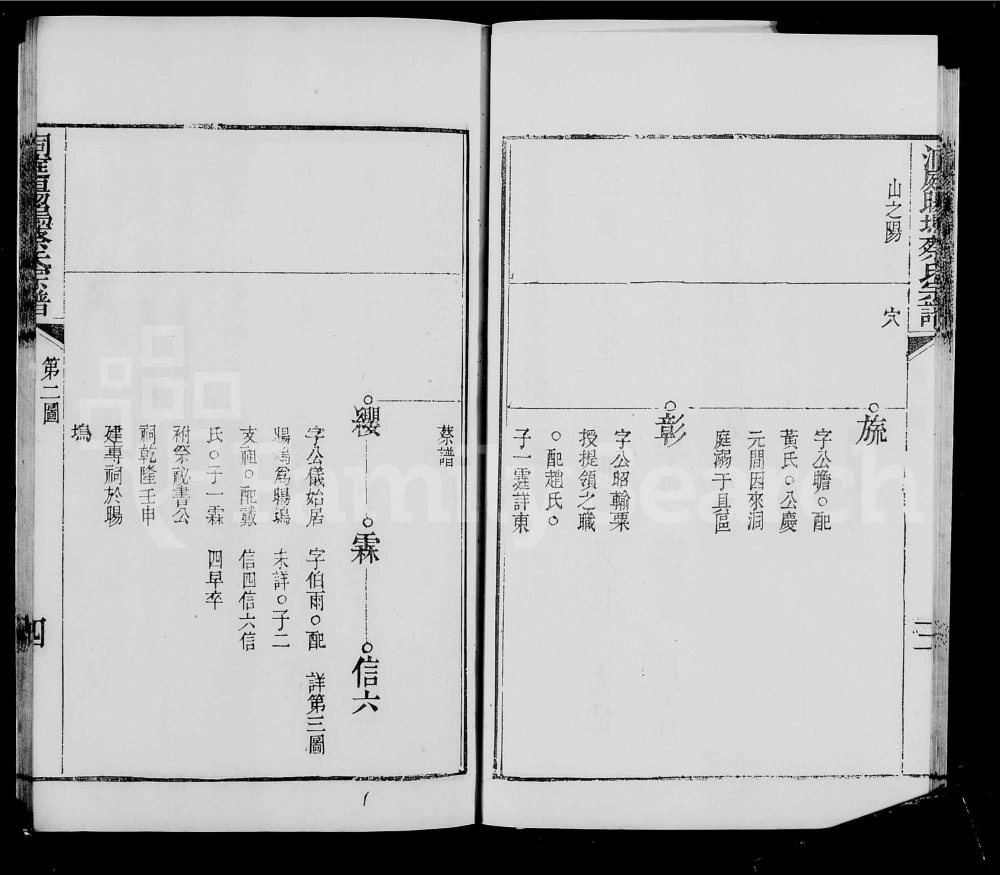 山之陽
穴
旒
字公聸○配
黃氏○公慶
元間因來洞
庭溺于具區
彰
字公昭輸粟
授提領之職
○配趙氏○
子一霆詳東
三
蔡譜
纓
字公儀始居
塢為賜塢
支祖○配戴
氏○子一霖
祔祭祕書公
祠乾隆壬申
建專祠於賜
塢
霖
字伯雨○配
未詳○子二
信四信六信
四早卒
信六
詳第三圖
蔡氏宗譜
第二圖
四
FamilySearch